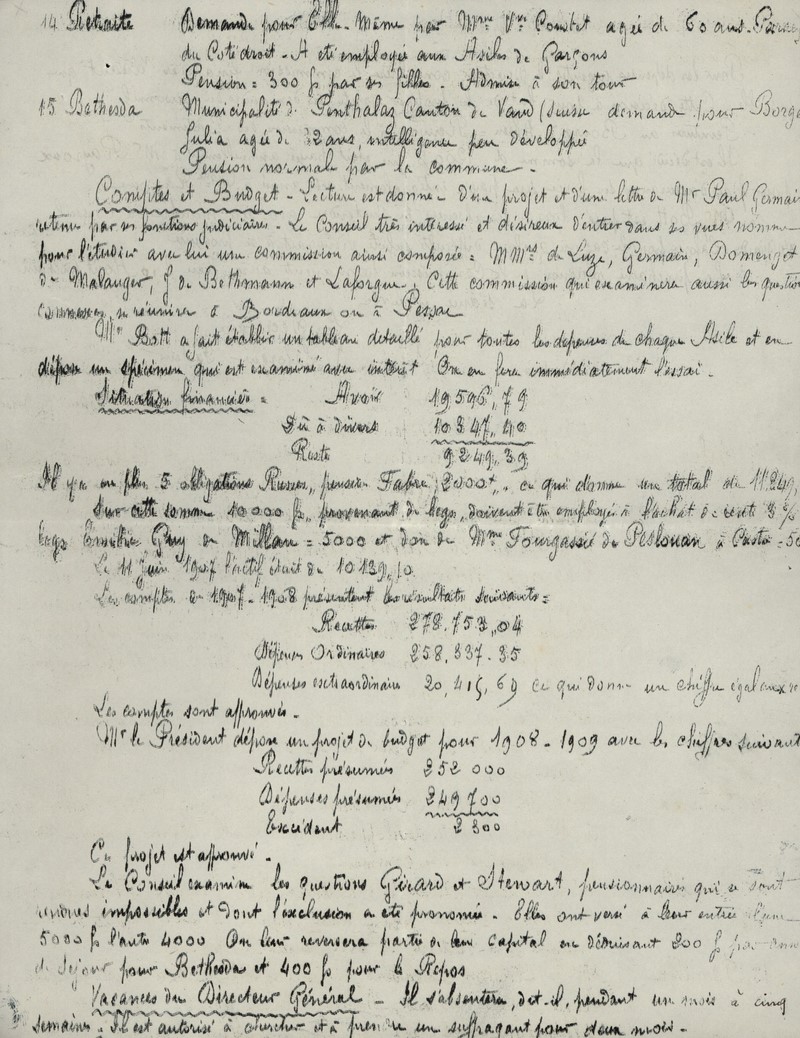 14 Retraite Demande pour Elle-Même par Mme Vve Constet agée de 60 ans
du Coté droit - A été employée aux Asiles de Garçons
Pension = 300 f par ses filles - Admise à son tour
15 Bethesda Municipalité de Penthalaz Canton de Vaud (Suisse demande pour Borge
Julia agée de 32 ans, intelligence peu développée
Pension normale par la commune -
Comptes et Budget - Lecture est donnée d'un projet et d'une lettre de Mr Paul Germain
retenu par ses fonctions judiciaires - Le Conseil très intéressé et désireux d'entrer dans ses vues nomme
pour l'étudier avec lui une commission ainsi composée = MMrs de Luze, Germain, Domenget
de Malauger, J de Bethmann et Laforgue. Cette commission qui examinera aussi les question
se réunira à Bordeaux ou à Pessac
Mr Bott a fait établir un tableau détaillé pour toutes les dépenses de chaque Asile et en
dépose un spécimen qui est examiné avec intérêt On en fera immédiatement l'essai -
Situation financière = Avoir 19.596,,79
Dû à divers 10.347,,40
Reste 9.249,,39
Il y a en plus 5 obligations Russes,, pension Fabre, 2000 f,, ce qui donne un total de 11.249,
Sur cette somme 10 000 f,, provenant de legs,, doivent être employés à l'achat de rente 3 %
legs Emilie Guy de Millau = 5000 et don de Mme Fourgassié de Peslouan à Castr = 50
Le 11 Juin 1907 l'actif était de 10139,
Les comptes de 1907-1908 présentent les résultats suivants =
Recettes 278.753,,04
Dépenses Ordinaires 258.337.35
Dépenses extraordinaires 20,415,69 ce qui donne un chiffre égal aux re
Les comptes sont approuvés -
Mr le Président dépose un projet de budget pour 1908-1909 avec les chiffres suivant
Recettes présumées 252 000
Dépenses présumées 249 700
Excédent 2 300
Ce projet est approuvé -
Le Conseil examine les questions Girard et Stewart, pensionnaires qui se sont
rendues impossibles et dont l'exclusion a été prononcée - Elles ont versé à leur entrée l'une
5000 f l'autre 4000 On leur reversera partie de leur capital en déduisant 200 f par année
de séjour pour Bethesda et 400 f pour le Repos
Vacances du Directeur Général - Il s'absentera, dit-il, pendant un mois à cinq
semaines - Il est autorisé à chercher et à prendre un suffragant pour deux mois -